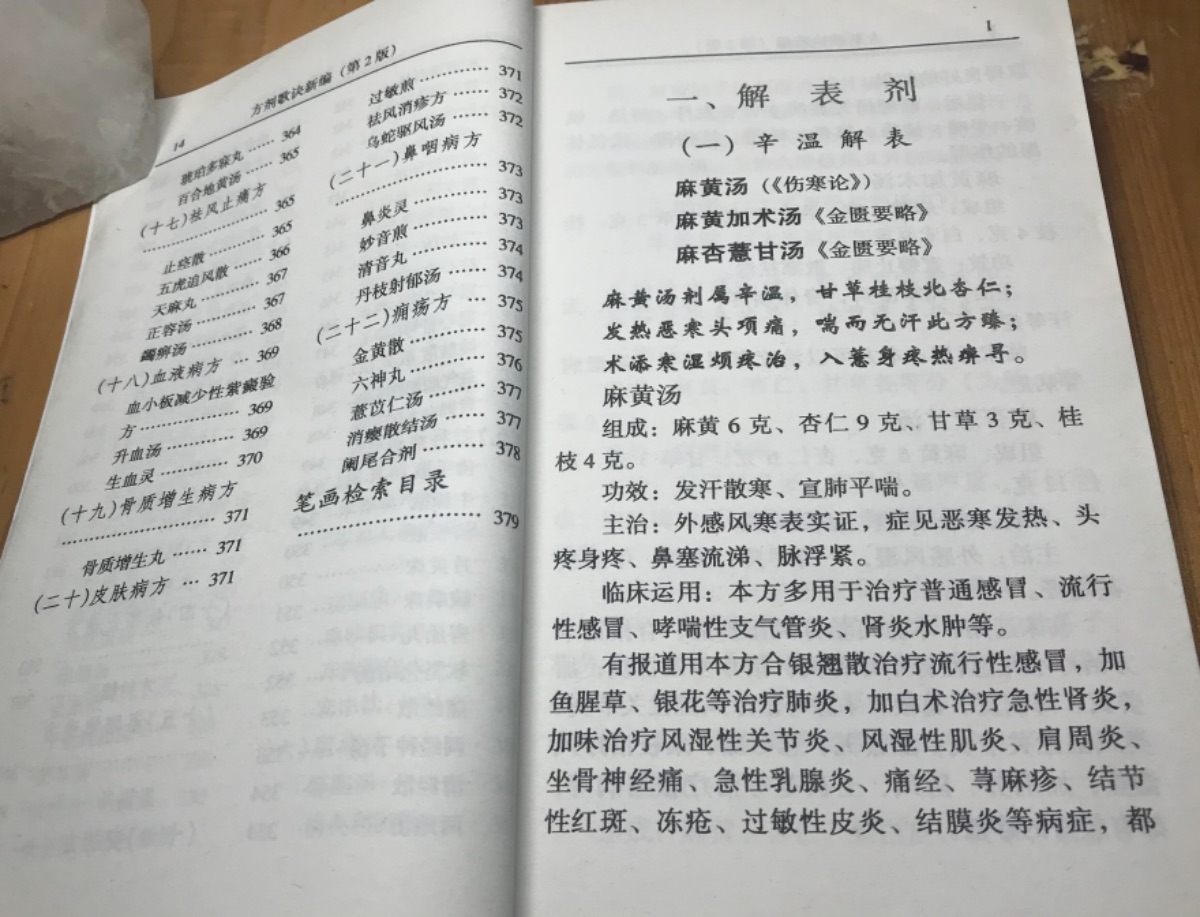 14 方剂歌诀新编(第2版)
琥珀多寐丸 …… 364
百合地黄汤 …… 365
(十七)祛风止痛方
…………………… 365
止痉散 ………… 365
五虎追风散 …… 366
天麻丸 ………… 367
正容汤 ………… 367
蠲痹汤 ………… 368
(十八)血液病方 … 369
血小板减少性紫癜验
方 ……………… 369
升血汤 ………… 369
生血灵 ………… 370
(十九)骨质增生病方
…………………… 371
骨质增生丸 …… 371
(二十)皮肤病方 … 371
过敏煎 ………… 371
祛风消疹方 …… 372
乌蛇驱风汤 …… 372
(二十一)鼻咽病方
…………………… 373
鼻炎灵 ………… 373
妙音煎 ………… 373
清音丸 ………… 374
丹枝射郁汤 …… 374
(二十二)痈疡方 … 375
金黄散 ………… 375
六神丸 ………… 376
薏苡仁汤 ……… 377
消瘿散结汤 …… 377
阑尾合剂 ……… 378
笔画检索目录
…………………… 379
1
一、解表剂
(一)辛温解表
麻黄汤(《伤寒论》)
麻黄加术汤《金匮要略》
麻杏薏甘汤《金匮要略》
麻黄汤剂属辛温，甘草桂枝北杏仁；
发热恶寒头项痛，喘而无汗此方臻；
术添寒湿烦疼治，入薏身疼热痹寻。
麻黄汤
组成：麻黄6克、杏仁9克、甘草3克、桂
枝4克。
功效：发汗散寒、宣肺平喘。
主治：外感风寒表实证，症见恶寒发热、头
疼身疼、鼻塞流涕、脉浮紧。
临床运用：本方多用于治疗普通感冒、流行
性感冒、哮喘性支气管炎、肾炎水肿等。
有报道用本方合银翘散治疗流行性感冒，加
鱼腥草、银花等治疗肺炎，加白术治疗急性肾炎，
加味治疗风湿性关节炎、风湿性肌炎、肩周炎、
坐骨神经痛、急性乳腺炎、痛经、荨麻疹、结节
性红斑、冻疮、过敏性皮炎、结膜炎等病症，都